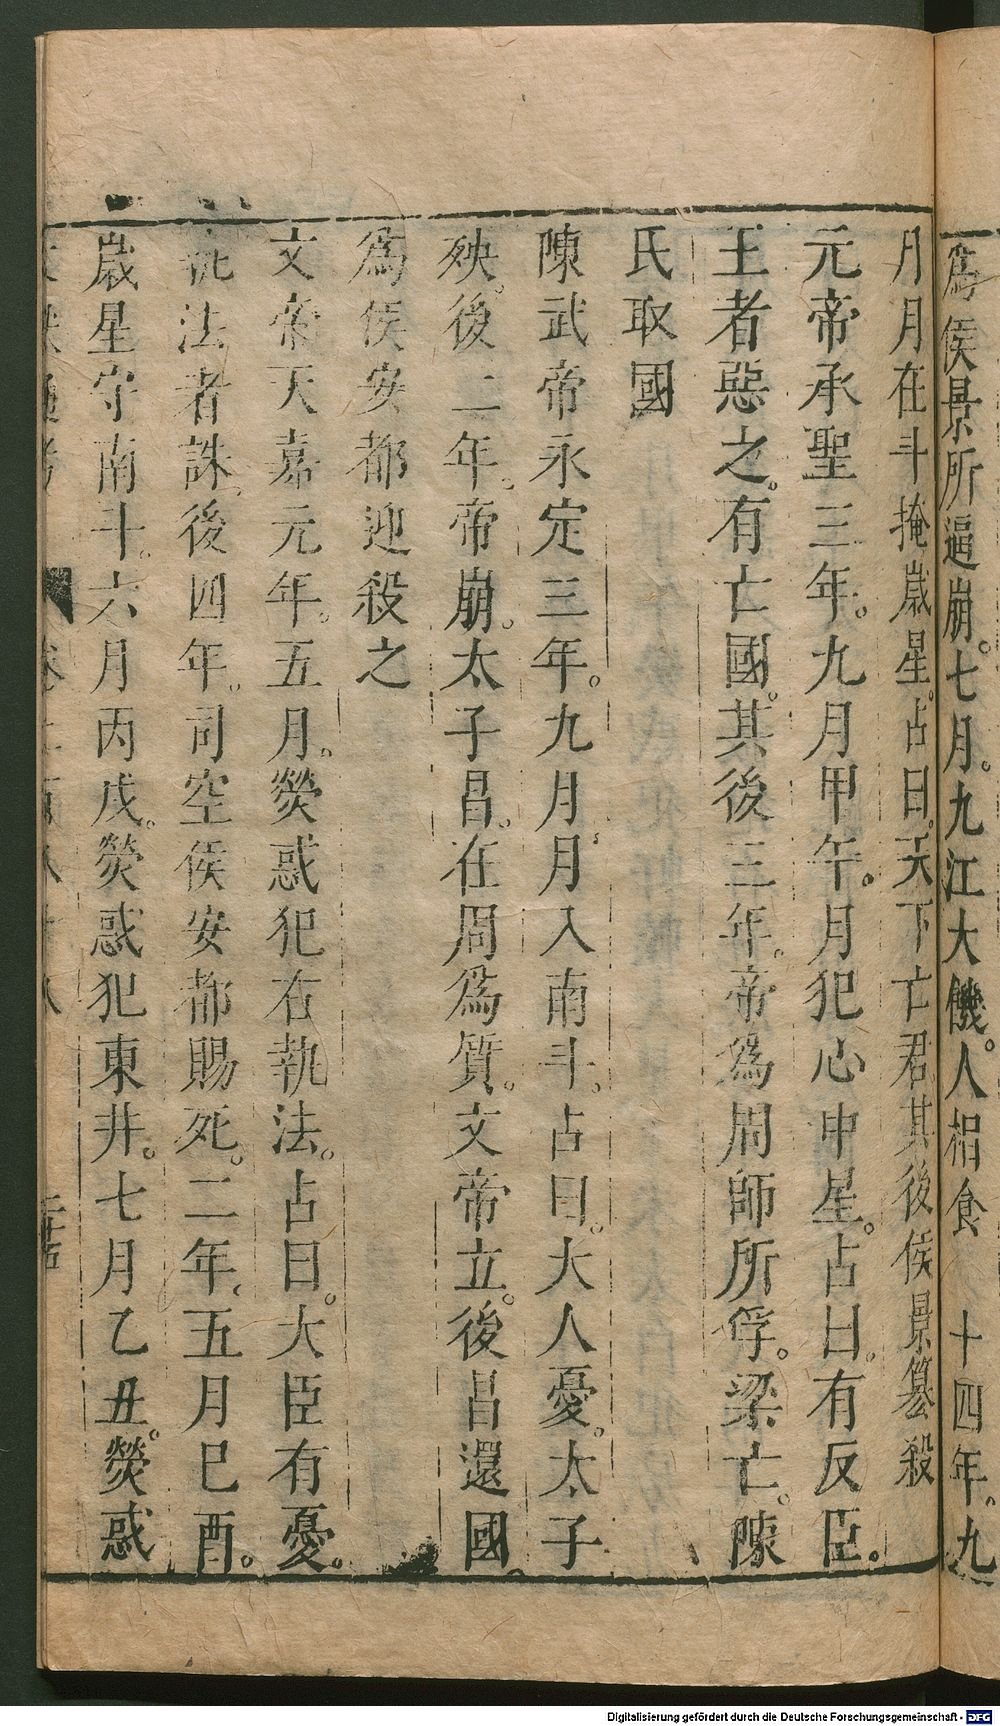 爲侯景所逼崩。七月。九江大饑。人相食 十四年。九
月月在斗掩歲星。占曰。天下亡君其後侯景篡殺
元帝承聖三年。九月甲午。月犯心中星。占曰。有反臣。
王者惡之。有亡國。其後三年。帝爲周師所俘。梁亡。陳
氏取國
陳武帝永定三年。九月月入南斗。占曰。大人憂。太子
殃。後二年。帝崩。太子昌。在周爲質。文帝立。後昌還國。
爲侯安都迎殺之
文帝天嘉元年。五月。熒惑犯右執法。占曰。大臣有憂。
執法者誅。後四年。司空侯安都賜死。二年。五月巳酉。
歲星守南斗。六月丙戌。熒惑犯東井。七月乙丑。熒惑
Digitalisierung gefördert durch die Deutsche Forschungsgemeinschaft - DFG